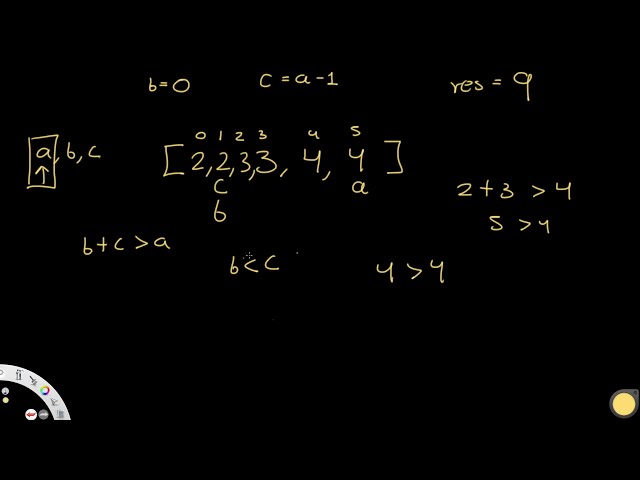 b=0 c=a-1 res=9
0 1 2 3 4 5
a, b, c [2,2,3,3, 4, 4]
c a
b
2+3>4
5>4
b+c>a
b<c 4>4